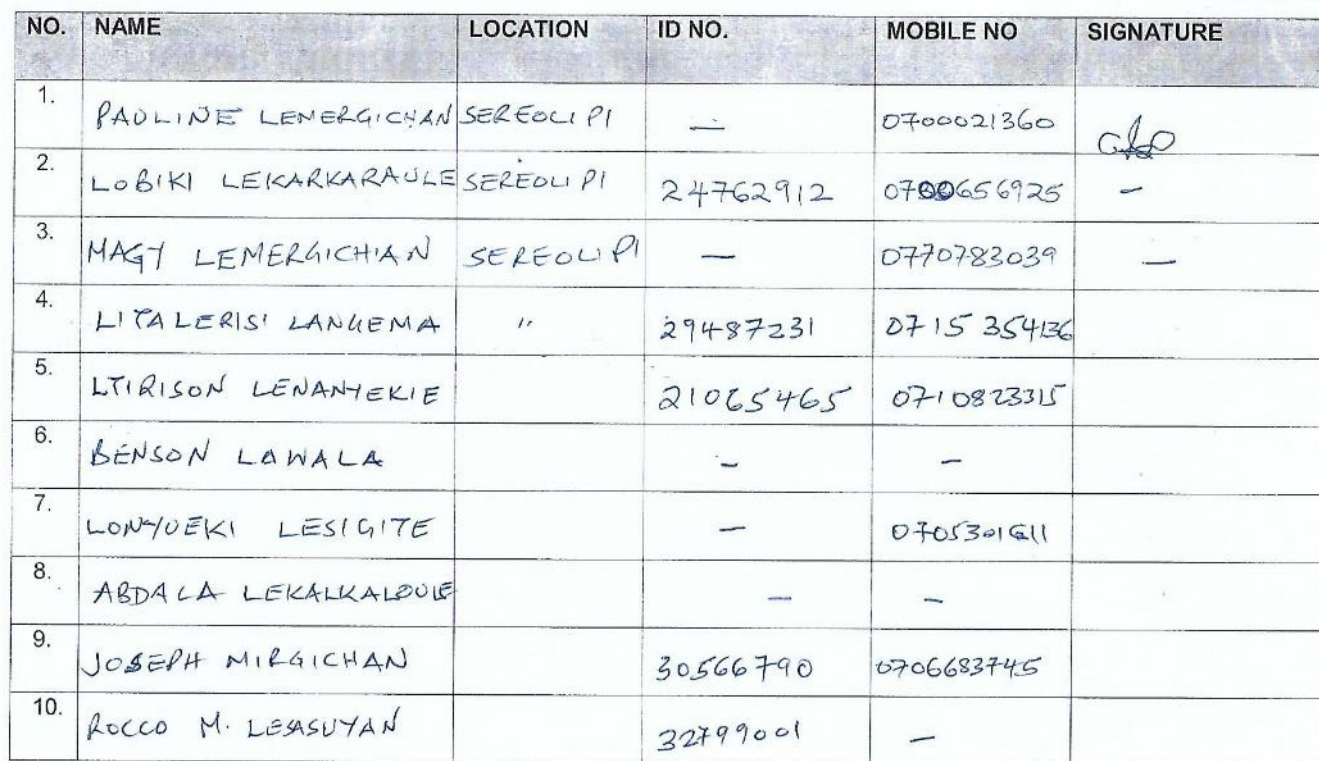 NO. NAME LOCATION ID NO. MOBILE NO SIGNATURE
1. PAULINE LEMERGICHAN SEREOLIPI — 0700021360
2. LOBIKI LEKARKARAULE SEREOLIPI 24762912 0700656925 -
3. MAGY LEMERGICHIAN SEREOLIPI — 0770783039 —
4. LITALERISI LANGEMA " 29487231 0715 354136
5. LTIRISON LENANYEKIE 21065465 0710823315
6. BENSON LAWALA - -
7. LONYUEKI LESIGITE -
8. ABDALA LEKALKALOULE - -
9. JOSEPH MIRGICHAN 30566790 0706683745
10. ROCCO M. LESASUYAN 32799001 -